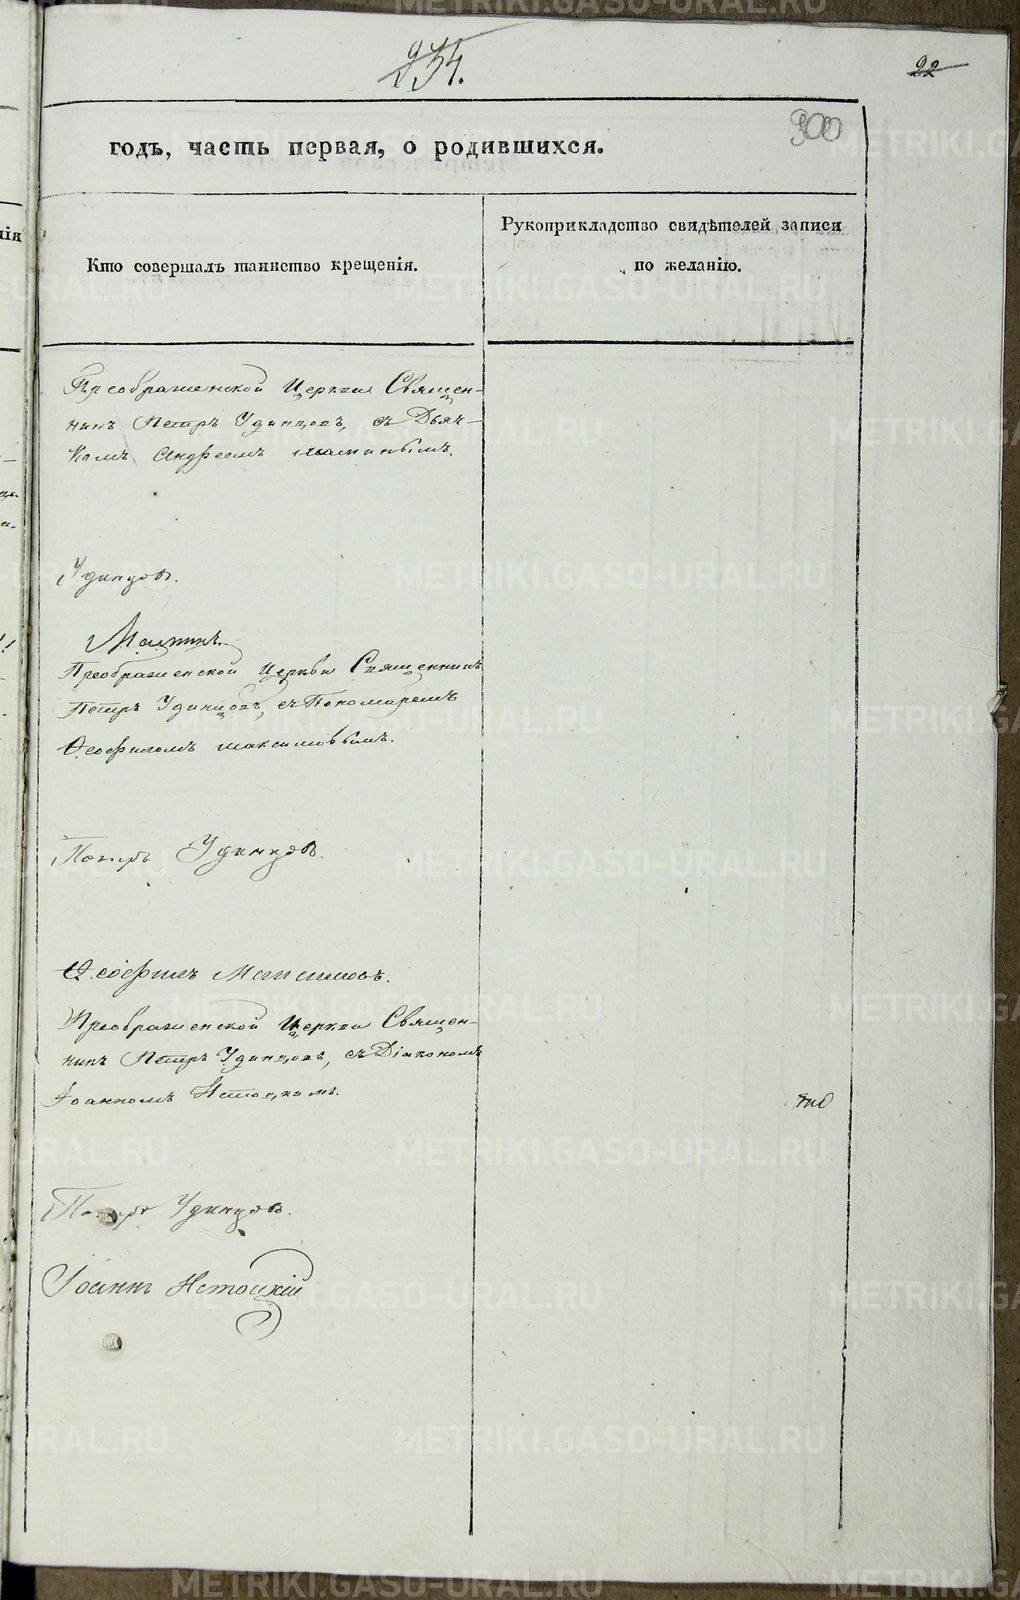 234.
22
300
годъ, часть первая, о родившихся.
Кто совершалъ таинство крещенія.
Рукоприкладство свидѣтелей записи
по желанію.
Преображенской Церкви Священ-
никъ Петръ Удинцовъ, съ Дьяч-
комъ Андреемъ
Удинцовъ.
Преображенской Церкви Священникъ
Петръ Удинцовъ, съ Пономаремъ
Ѳеофиломъ Максимовымъ.
Петръ Удинцовъ.
Ѳеофилъ Максимовъ.
Преображенской Церкви Священ-
никъ Петръ Удинцовъ, съ Діакономъ
Іоанномъ Истоцкимъ.
Петръ Удинцовъ.
Іоаннъ Истоцкій
METRIKI.GASO-URAL.RU